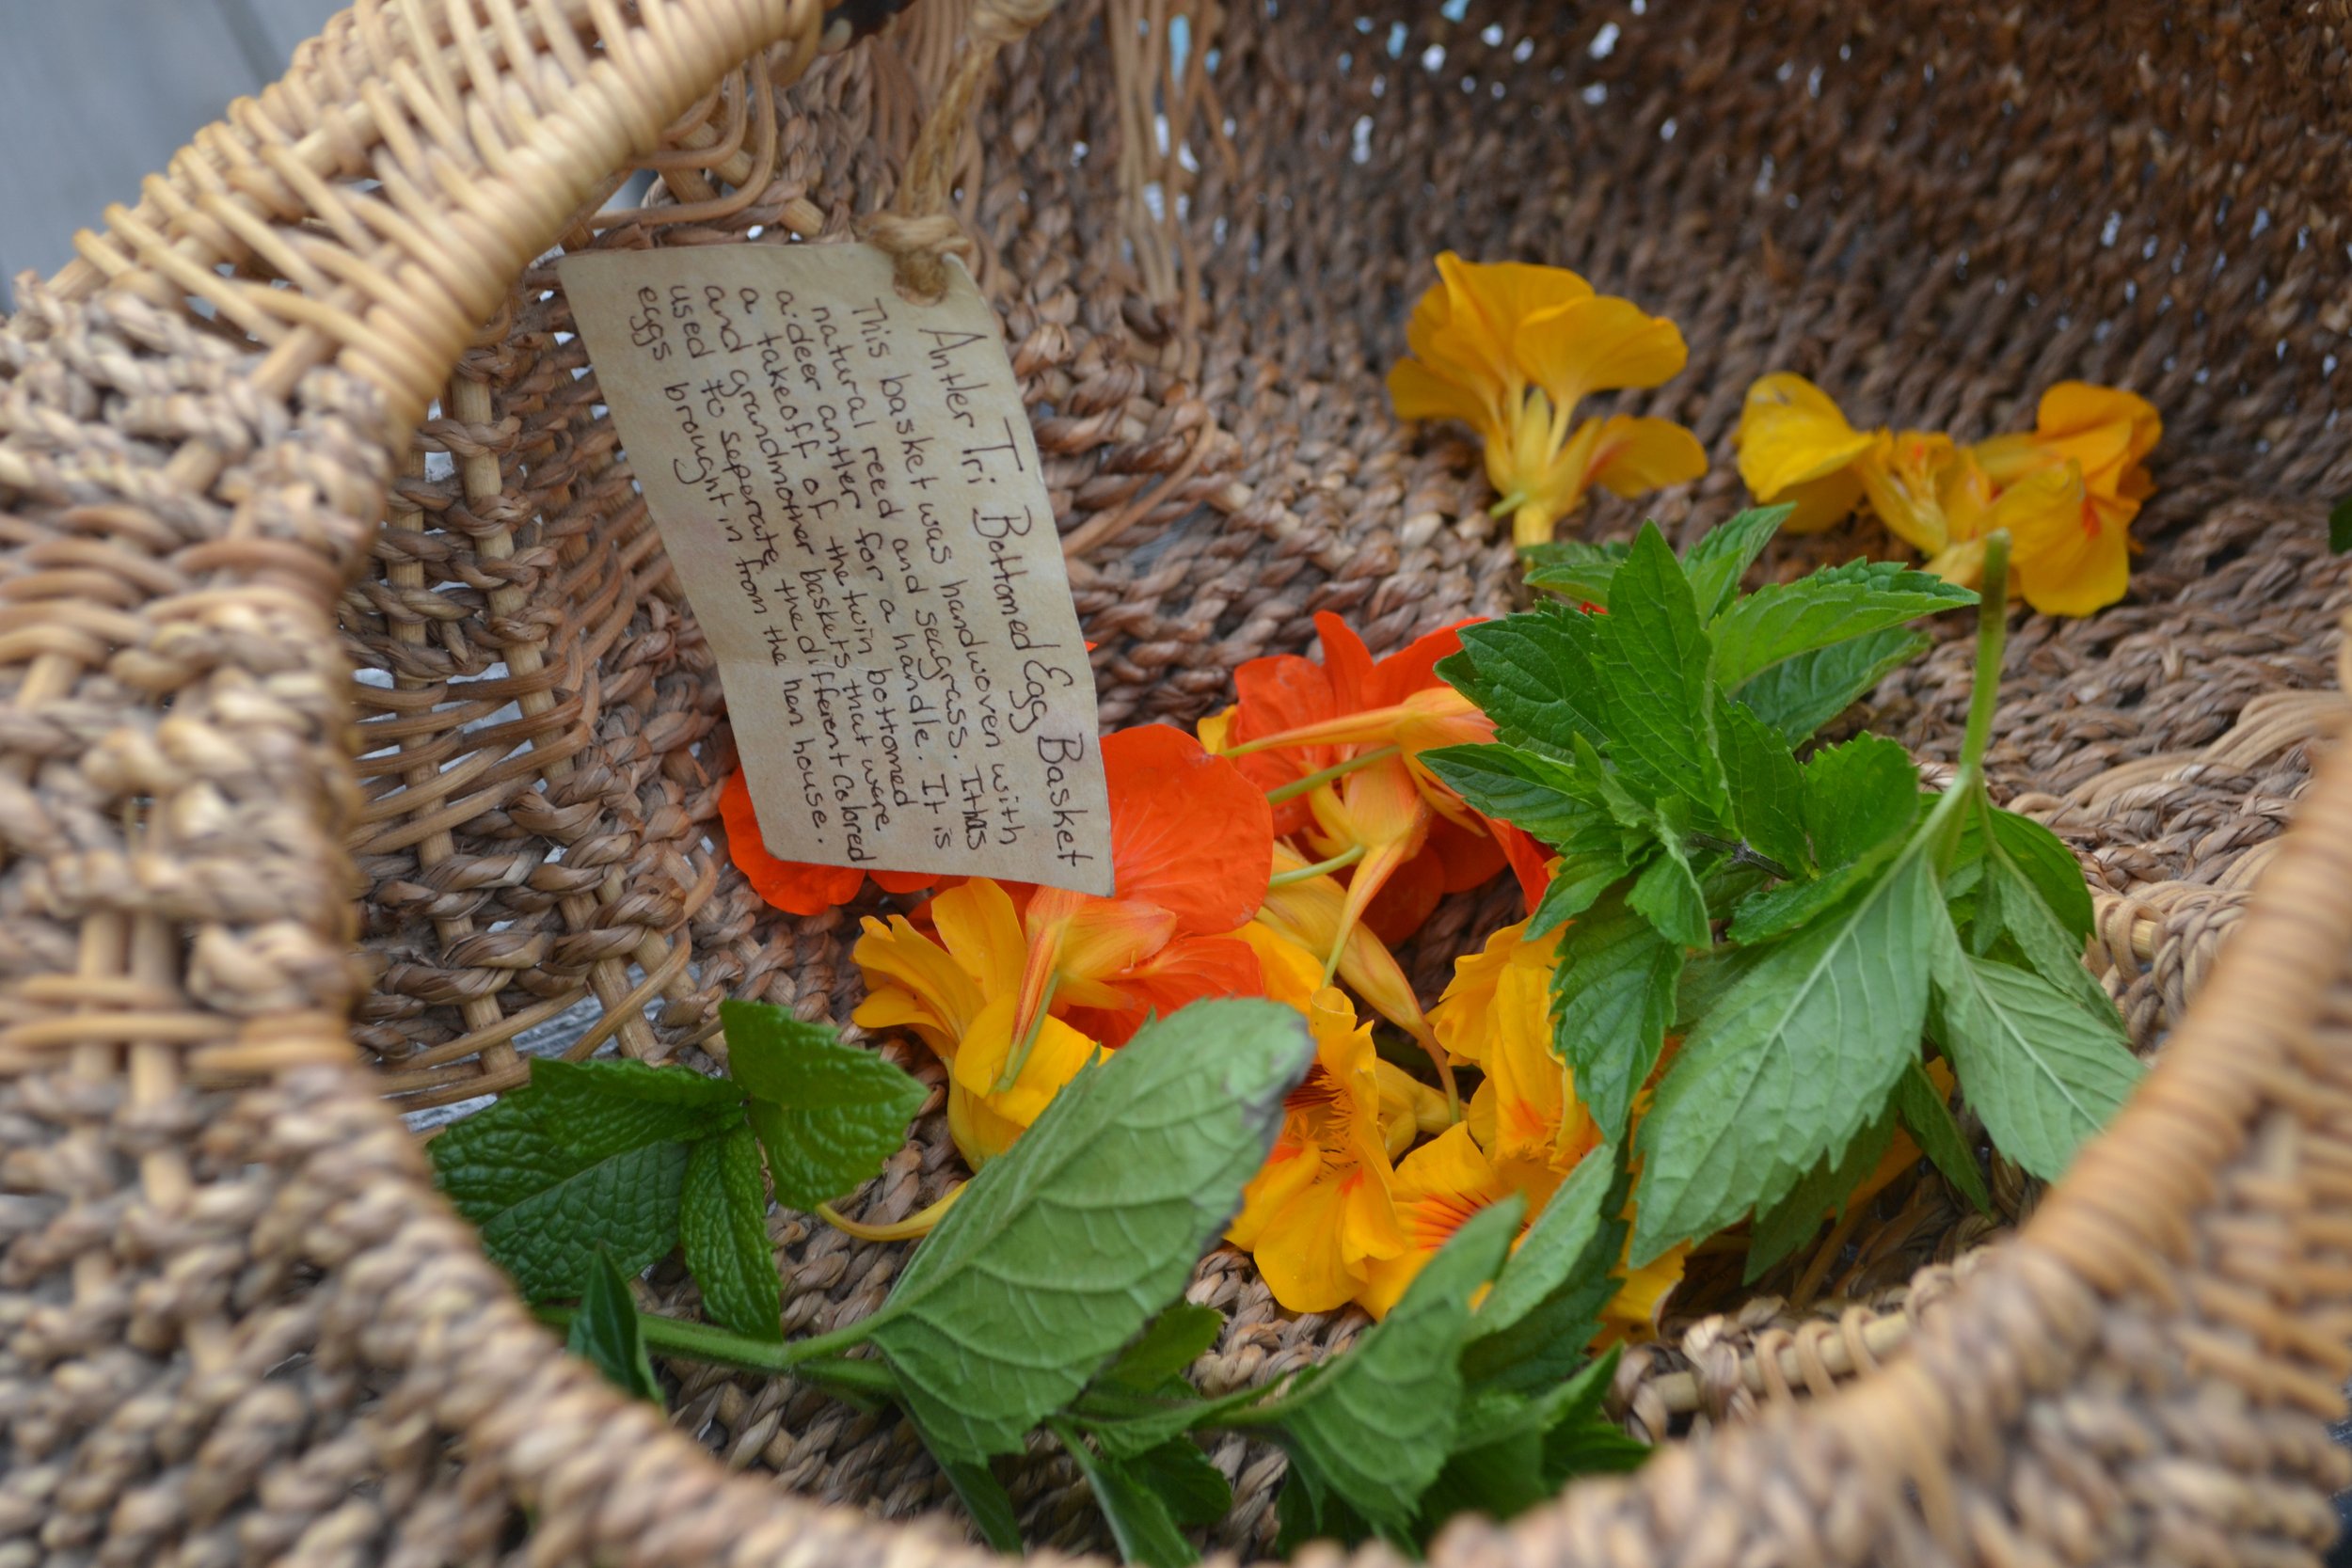 Antler Tri Bottomed Egg Basket
This basket was handwoven with
natural reed and seagrass. It has
a deer antler for a handle. It is
a takeoff of the twin bottomed
and grandmother baskets that were
used to seperate the different colored
eggs brought in from the hen house.